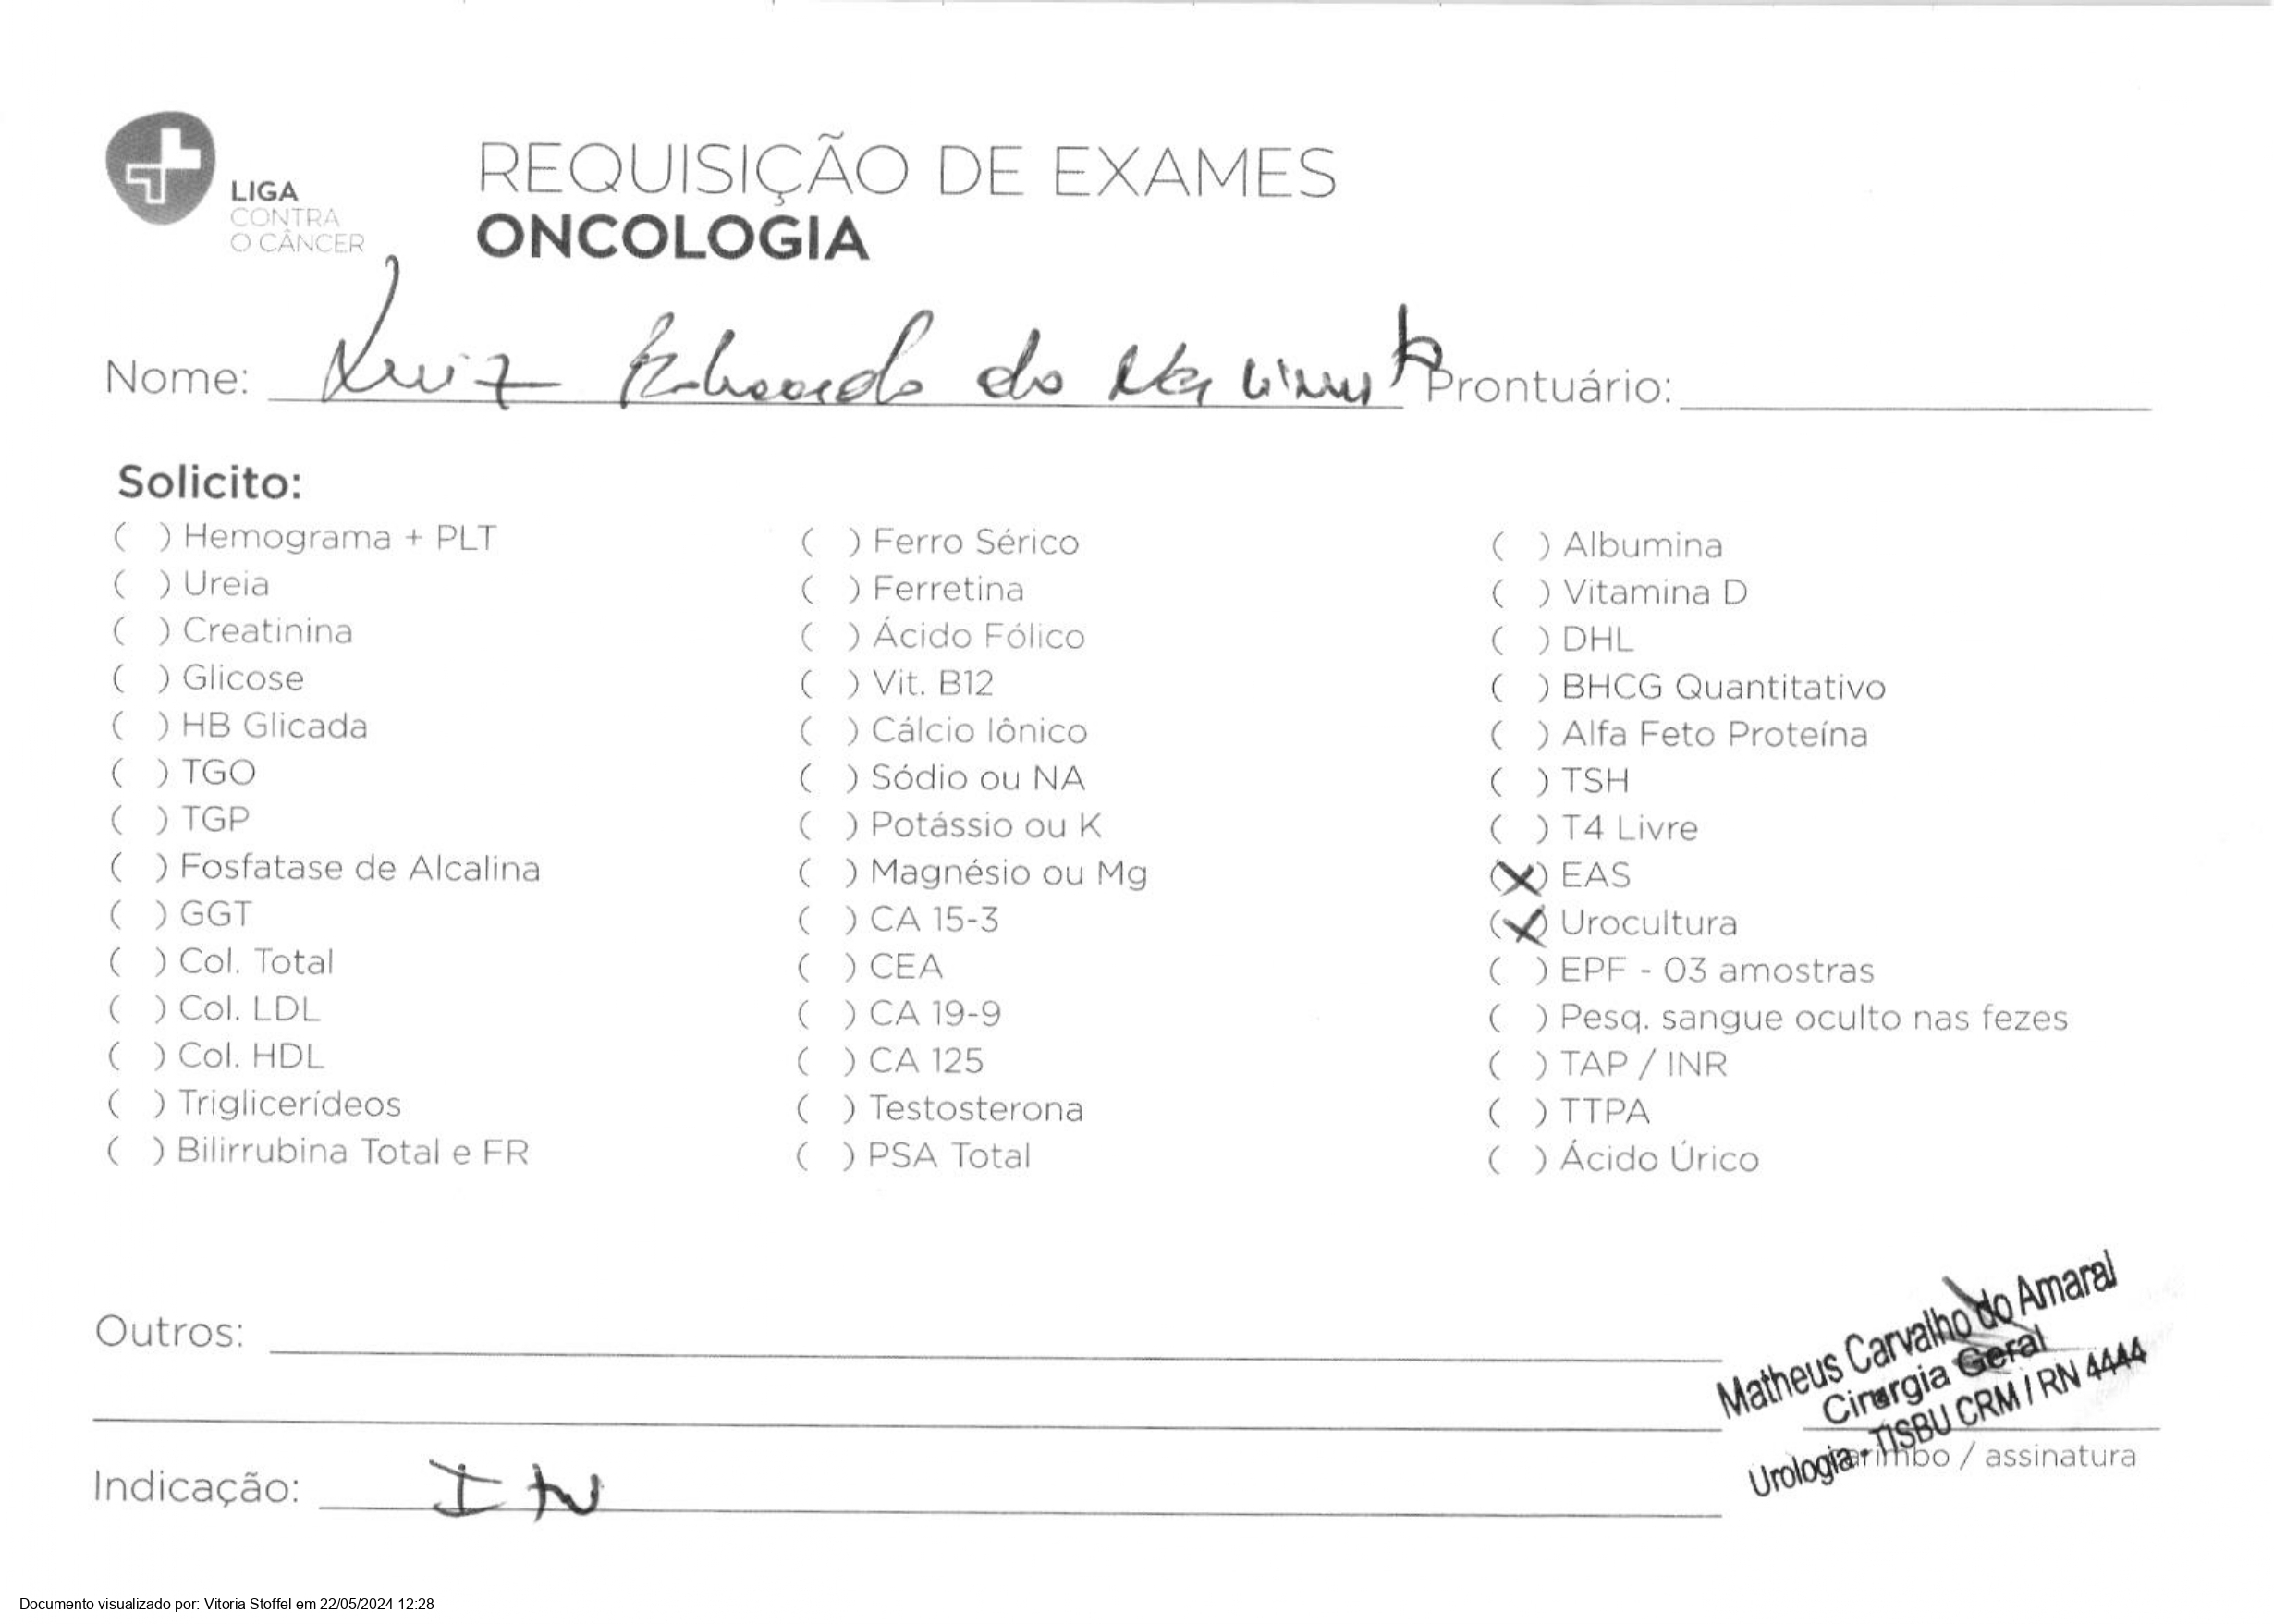 LIGA
CONTRA
O CÂNCER
REQUISIÇÃO DE EXAMES
ONCOLOGIA
Nome: Luiz Eduardo do Prontuário:
Solicito:
( ) Hemograma + PLT
( ) Ureia
( ) Creatinina
( ) Glicose
( ) HB Glicada
( ) TGO
( ) TGP
( ) Fosfatase de Alcalina
( ) GGT
( ) Col. Total
( ) Col. LDL
( ) Col. HDL
( ) Triglicerídeos
( ) Bilirrubina Total e FR
( ) Ferro Sérico
( ) Ferretina
( ) Ácido Fólico
( ) Vit. B12
( ) Cálcio Iônico
( ) Sódio ou NA
( ) Potássio ou K
( ) Magnésio ou Mg
( ) CA 15-3
( ) CEA
( ) CA 19-9
( ) CA 125
( ) Testosterona
( ) PSA Total
( ) Albumina
( ) Vitamina D
( ) DHL
( ) BHCG Quantitativo
( ) Alfa Feto Proteína
( ) TSH
( ) T4 Livre
(X) EAS
(X) Urocultura
( ) EPF - 03 amostras
( ) Pesq. sangue oculto nas fezes
( ) TAP / INR
( ) TTPA
( ) Ácido Úrico
Outros:
Matheus Carvalho do Amaral
Cirurgia Geral
Urologia - TISBU CRM / RN 4444
Carimbo / assinatura
Indicação:
Documento visualizado por: Vitoria Stoffel em 22/05/2024 12:28